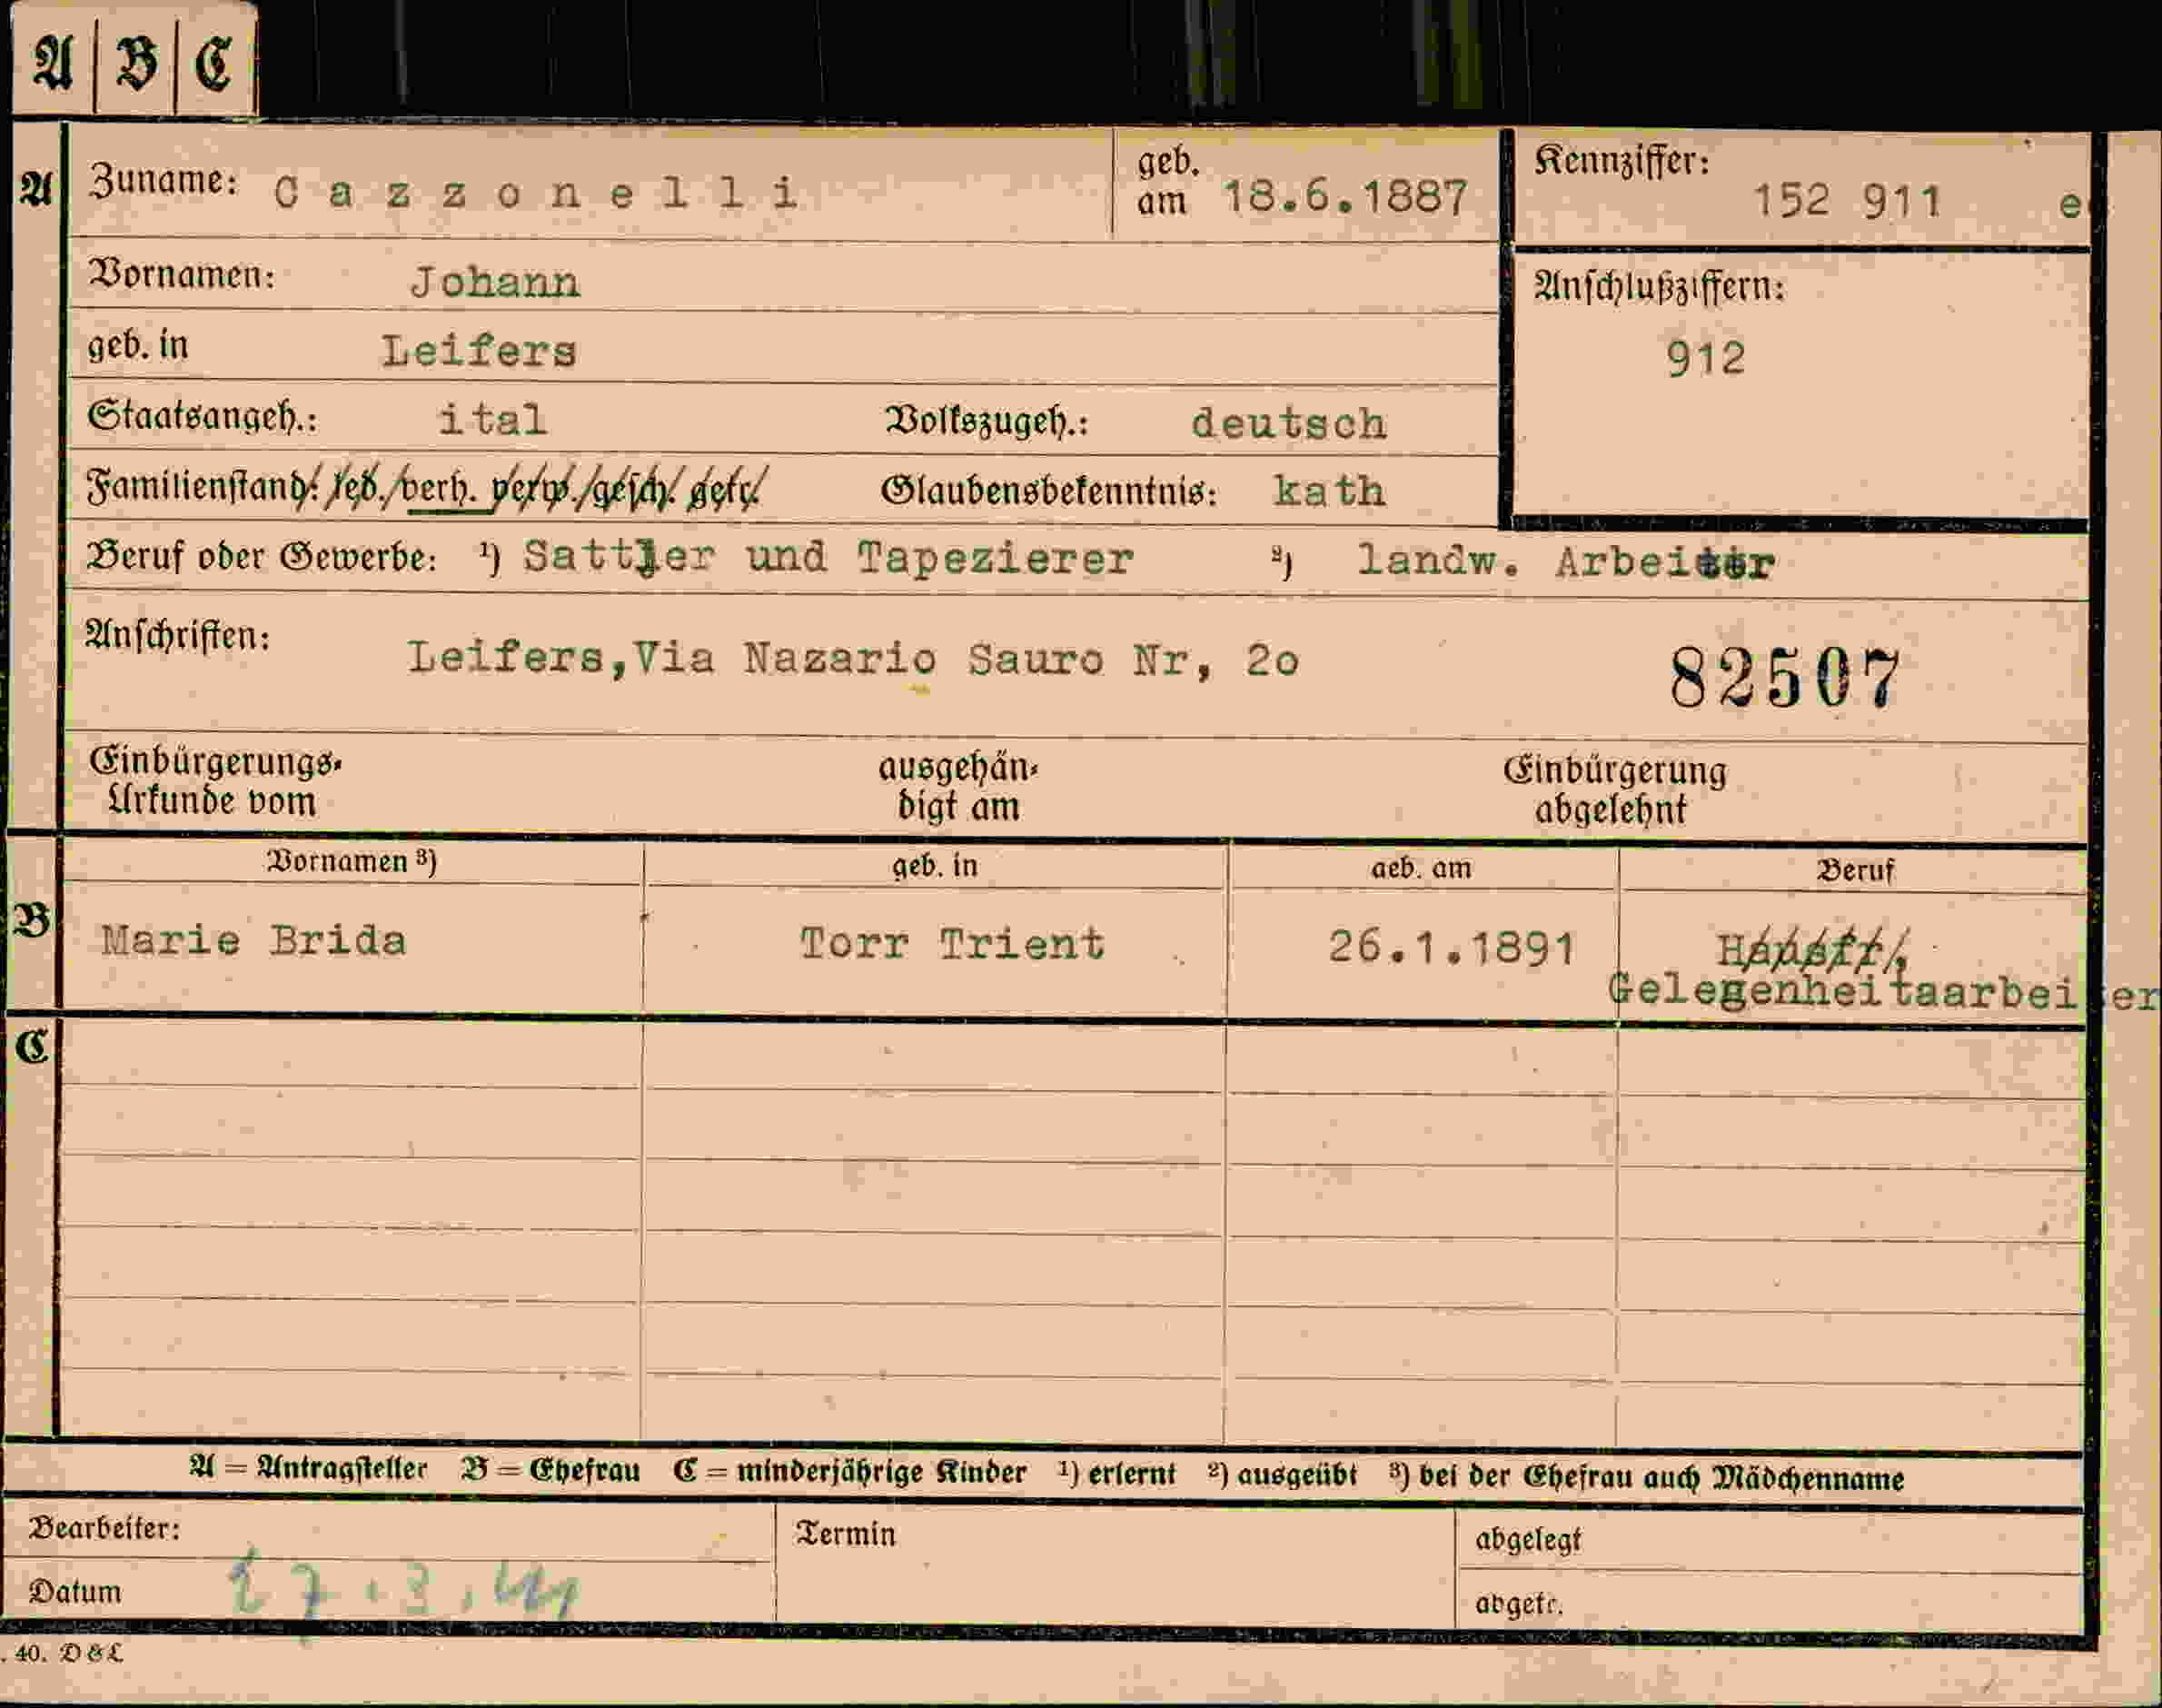 A B C
A Zuname: Cazzonelli geb. am 18.6.1887 Kennziffer: 152 911 e
Vornamen: Johann Anschlußziffern:
geb. in Leifers 912
Staatsangeh.: ital Volkszugeh.: deutsch
Familienstand: led. verh. verw. gesch. getr. Glaubensbekenntnis: kath
Beruf oder Gewerbe: ¹) Sattler und Tapezierer ²) landw. Arbeiter
Anschriften: Leifers,Via Nazario Sauro Nr, 2o 82507
Einbürgerungs- ausgehän- Einbürgerung
Urkunde vom digt am abgelehnt
Vornamen ³) geb. in geb. am Beruf
B Marie Brida Torr Trient 26.1.1891 Hausfr.
Gelegenheitaarbeiter
C
A = Antragsteller B = Ehefrau C = minderjährige Kinder ¹) erlernt ²) ausgeübt ³) bei der Ehefrau auch Mädchenname
Bearbeiter: Termin abgelegt
Datum 7.3.41 abgetr.
. 40. D & L